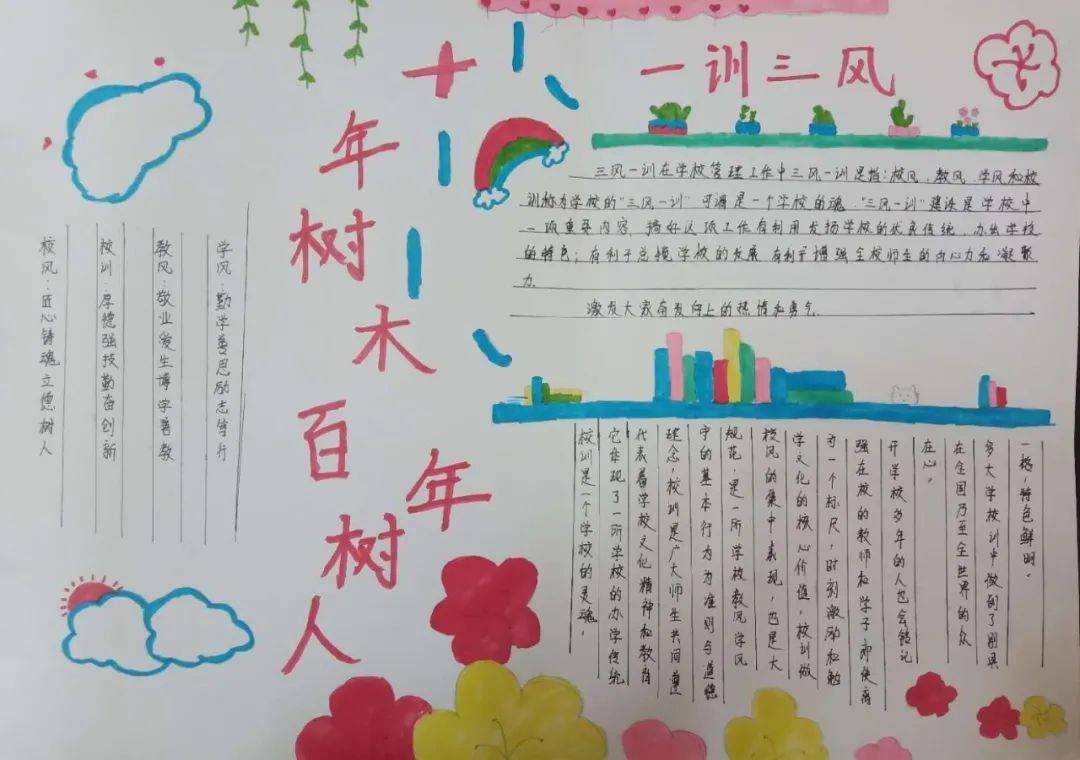 十
年
树
木
百
年
树
人
校风：匠心铸魂立德树人
校训：厚德强技勤奋创新
教风：敬业爱生博学善教
学风：勤学善思励志笃行
一训三风
三风一训在学校管理工作中三风一训是指：校风、教风、学风和校
训称为学校的“三风一训” 可谓是一个学校的魂，“三风一训”建设是学校中
一项重要内容，搞好这项工作有利用发扬学校的优良传统，办出学校
的特色；有利于总揽学校的发展，有利于增强全校师生的向心力和凝聚
力
激发大家奋发向上的热情和勇气
校训是一个学校的灵魂，
它体现了一所学校的办学传统
代表着学校文化精神和教育
理念，校训是广大师生共同遵
守的基本行为为准则与道德
规范，是一所学校教风学风
校风的集中表现，也是大
学文化的核心价值，校训做
为一个标尺，时刻激励和勉
强在校的教师和学子 即使离
开学校多年的人也会铭记
在心。
在全国乃至全世界的众
多大学校训中做到了别具
一格，特色鲜明。